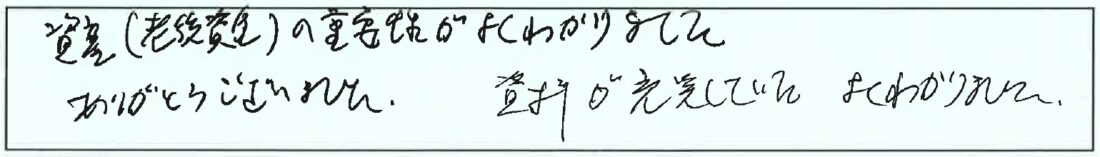 資産(老後資金)の重要性がよくわかりました
ありがとうございました. 資料が充実していて よくわかりました.